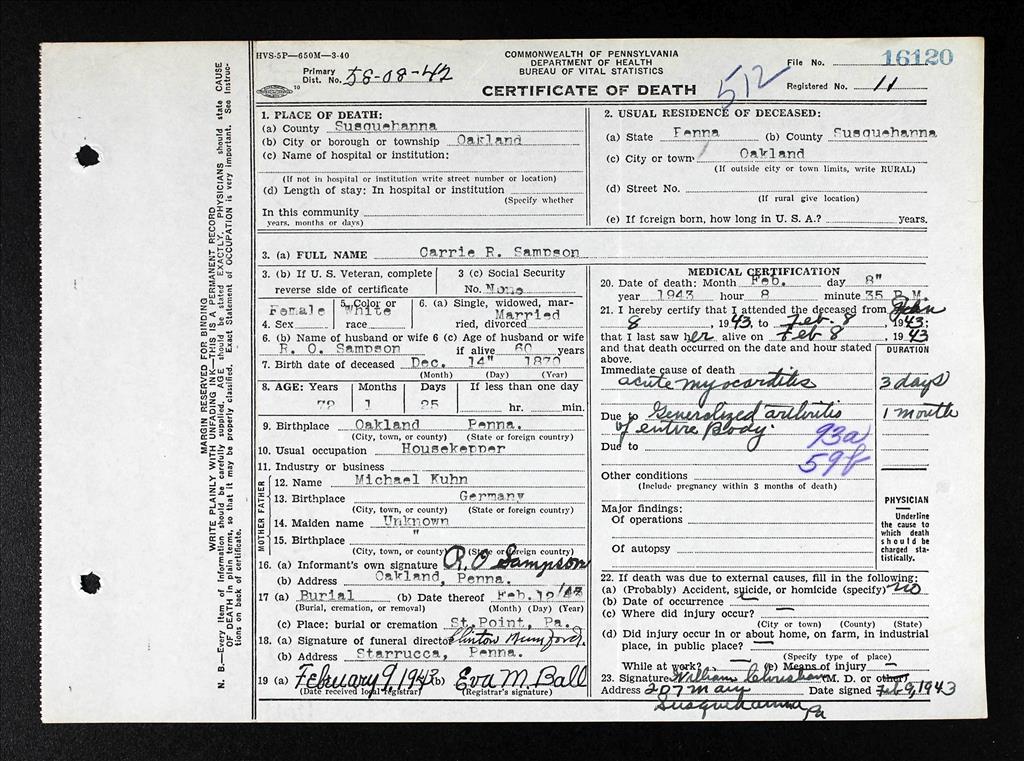 HVS-5P—650M—3-40
COMMONWEALTH OF PENNSYLVANIA
DEPARTMENT OF HEALTH
BUREAU OF VITAL STATISTICS
CERTIFICATE OF DEATH
Primary
Dist. No. 58-08-42
512
File No. 16120
Registered No. 11
MARGIN RESERVED FOR BINDING
WRITE PLAINLY WITH UNFADING INK—THIS IS A PERMANENT RECORD
N. B.—Every item of information should be carefully supplied. AGE should be stated EXACTLY. PHYSICIANS should state CAUSE
OF DEATH in plain terms, so that it may be properly classified. Exact Statement of OCCUPATION is very important. See Instruc-
tions on back of certificate.
1. PLACE OF DEATH:
(a) County Susquehanna
(b) City or borough or township Oakland
(c) Name of hospital or institution:
(If not in hospital or institution write street number or location)
(d) Length of stay: In hospital or institution
(Specify whether
In this community
years, months or days)
2. USUAL RESIDENCE OF DECEASED:
(a) State Penna (b) County Susquehanna
(c) City or town Oakland
(If outside city or town limits, write RURAL)
(d) Street No.
(If rural give location)
(e) If foreign born, how long in U. S. A.? years.
3. (a) FULL NAME Carrie R. Sampson
3. (b) If U. S. Veteran, complete
reverse side of certificate
3 (c) Social Security
No. None
Female
4. Sex
5. Color or
White
race
6. (a) Single, widowed, mar-
Married
ried, divorced
6. (b) Name of husband or wife 6 (c) Age of husband or wife
R. O. Sampson if alive 60 years
7. Birth date of deceased Dec. 14" 1870
(Month) (Day) (Year)
8. AGE: Years Months Days If less than one day
72 1 25 hr. min.
9. Birthplace Oakland Penna.
(City, town, or county) (State or foreign country)
10. Usual occupation Housekepper
11. Industry or business
FATHER
12. Name Michael Kuhn
13. Birthplace Germany
(City, town, or county) (State or foreign country)
MOTHER
14. Maiden name Unknown
15. Birthplace "
(City, town, or county) (State or foreign country)
16. (a) Informant's own signature R. O Sampson
(b) Address Oakland, Penna.
17 (a) Burial (b) Date thereof Feb. 12/43
(Burial, cremation, or removal) (Month) (Day) (Year)
(c) Place: burial or cremation St. Point, Pa.
18. (a) Signature of funeral director Clinton Mumford.
(b) Address Starrucca, Penna.
19 (a) February 9, 1943 (b) Eva M. Ball
(Date received local registrar) (Registrar's signature)
MEDICAL CERTIFICATION
20. Date of death: Month Feb. day 8"
year 1943 hour 8 minute 35 P.M.
21. I hereby certify that I attended the deceased from Jan
8, 1943, to Feb. 8, 1943;
that I last saw her alive on Feb 8, 1943
and that death occurred on the date and hour stated
above.
DURATION
Immediate cause of death
acute myocarditis 3 days
Due to Generalized arthritis 1 month
of entire Body.
Due to
93a
59b
Other conditions
(Include pregnancy within 3 months of death)
Major findings:
Of operations
Of autopsy
PHYSICIAN
Underline
the cause to
which death
should be
charged sta-
tistically.
22. If death was due to external causes, fill in the following:
(a) (Probably) Accident, suicide, or homicide (specify) no
(b) Date of occurrence —
(c) Where did injury occur? —
(City or town) (County) (State)
(d) Did injury occur in or about home, on farm, in industrial
place, in public place? —
(Specify type of place)
While at work? — (e) Means of injury —
23. Signature William (M. D. or other)
Address 207 Main Date signed Feb 9, 1943
Susquehanna Pa